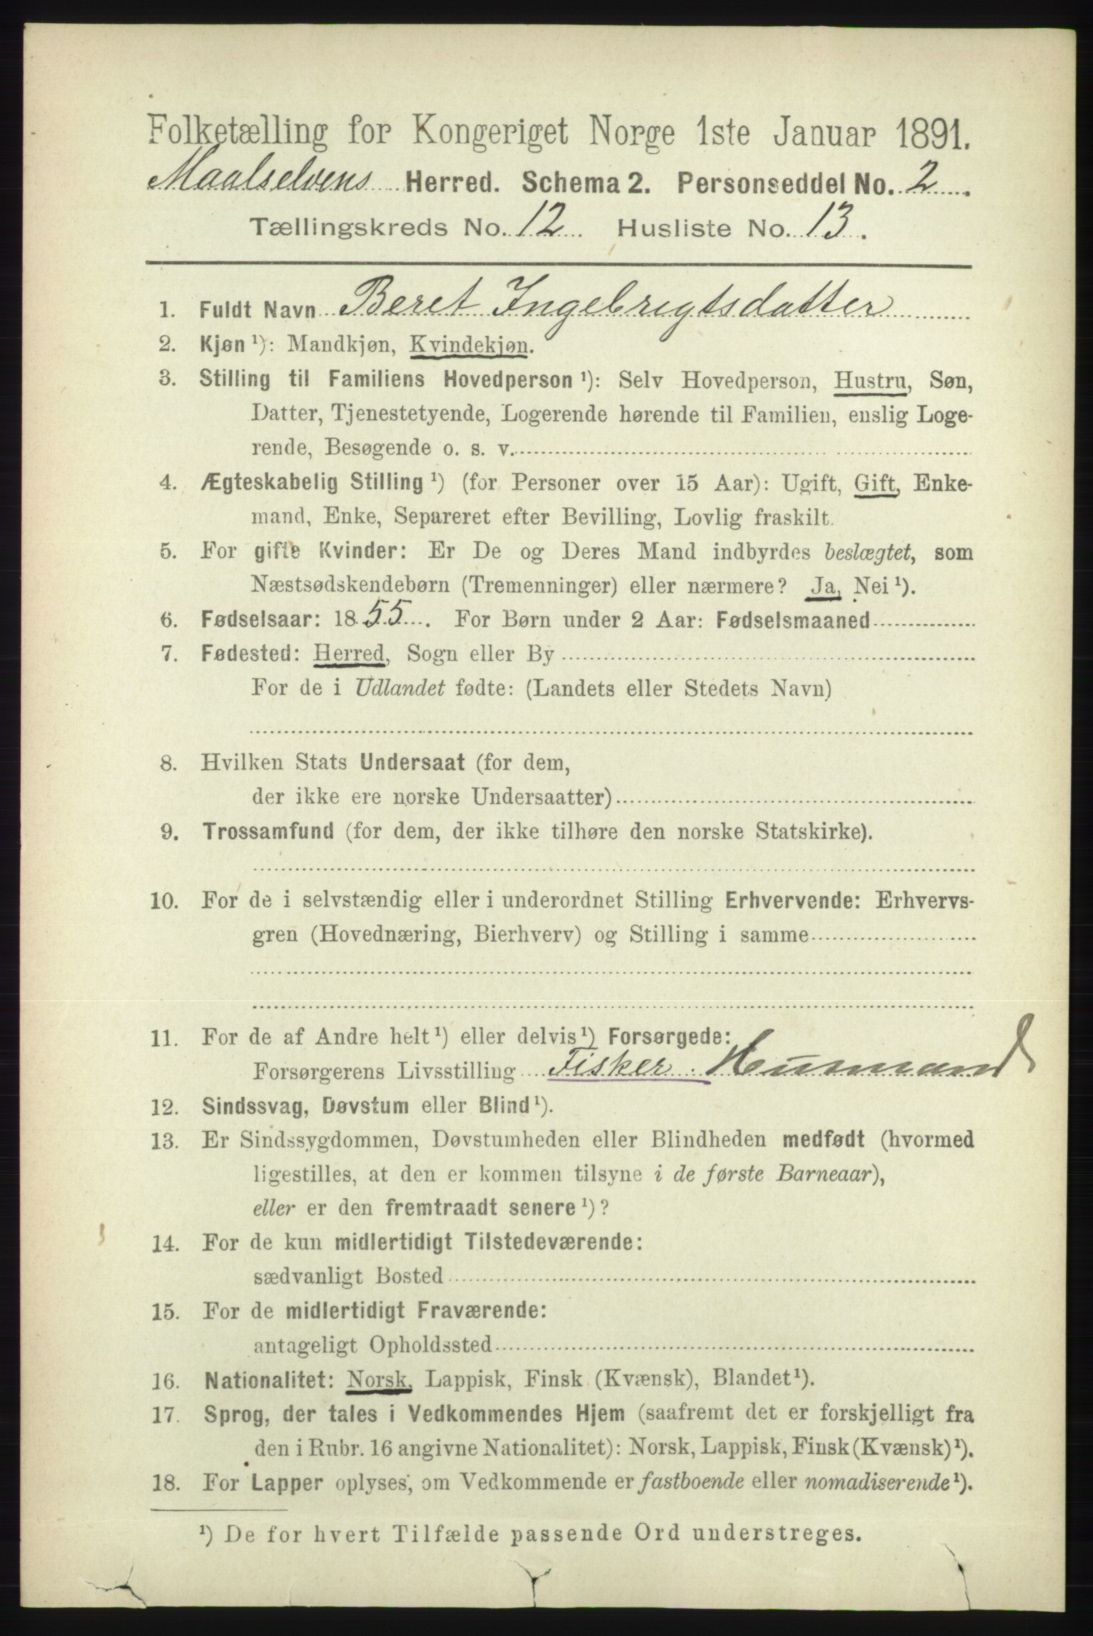 Folketælling for Kongeriget Norge 1ste Januar 1891.
Maalselvens Herred. Schema 2. Personseddel No. 2.
Tællingskreds No. 12. Husliste No. 13.
1. Fuldt Navn Beret Ingebrigtsdatter
2. Kjøn ¹): Mandkjøn, Kvindekjøn.
3. Stilling til Familiens Hovedperson ¹): Selv Hovedperson, Hustru, Søn,
Datter, Tjenestetyende, Logerende hørende til Familien, enslig Loge-
rende, Besøgende o. s. v.
4. Ægteskabelig Stilling ¹) (for Personer over 15 Aar): Ugift, Gift, Enke-
mand, Enke, Separeret efter Bevilling, Lovlig fraskilt.
5. For gifte Kvinder: Er De og Deres Mand indbyrdes beslægtet, som
Næstsødskendebørn (Tremenninger) eller nærmere? Ja, Nei ¹).
6. Fødselsaar: 1855. For Børn under 2 Aar: Fødselsmaaned
7. Fødested: Herred, Sogn eller By
For de i Udlandet fødte: (Landets eller Stedets Navn)
8. Hvilken Stats Undersaat (for dem,
der ikke ere norske Undersaatter)
9. Trossamfund (for dem, der ikke tilhøre den norske Statskirke).
10. For de i selvstændig eller i underordnet Stilling Erhvervende: Erhvervs-
gren (Hovednæring, Bierhverv) og Stilling i samme
11. For de af Andre helt ¹) eller delvis ¹) Forsørgede:
Forsørgerens Livsstilling Fisker. Husmand
12. Sindssvag, Døvstum eller Blind ¹).
13. Er Sindssygdommen, Døvstumheden eller Blindheden medfødt (hvormed
ligestilles, at den er kommen tilsyne i de første Barneaar),
eller er den fremtraadt senere ¹)?
14. For de kun midlertidigt Tilstedeværende:
sædvanligt Bosted
15. For de midlertidigt Fraværende:
antageligt Opholdssted
16. Nationalitet: Norsk, Lappisk, Finsk (Kvænsk), Blandet ¹).
17. Sprog, der tales i Vedkommendes Hjem (saafremt det er forskjelligt fra
den i Rubr. 16 angivne Nationalitet): Norsk, Lappisk, Finsk (Kvænsk) ¹).
18. For Lapper oplyses, om Vedkommende er fastboende eller nomadiserende ¹).
¹) De for hvert Tilfælde passende Ord understreges.